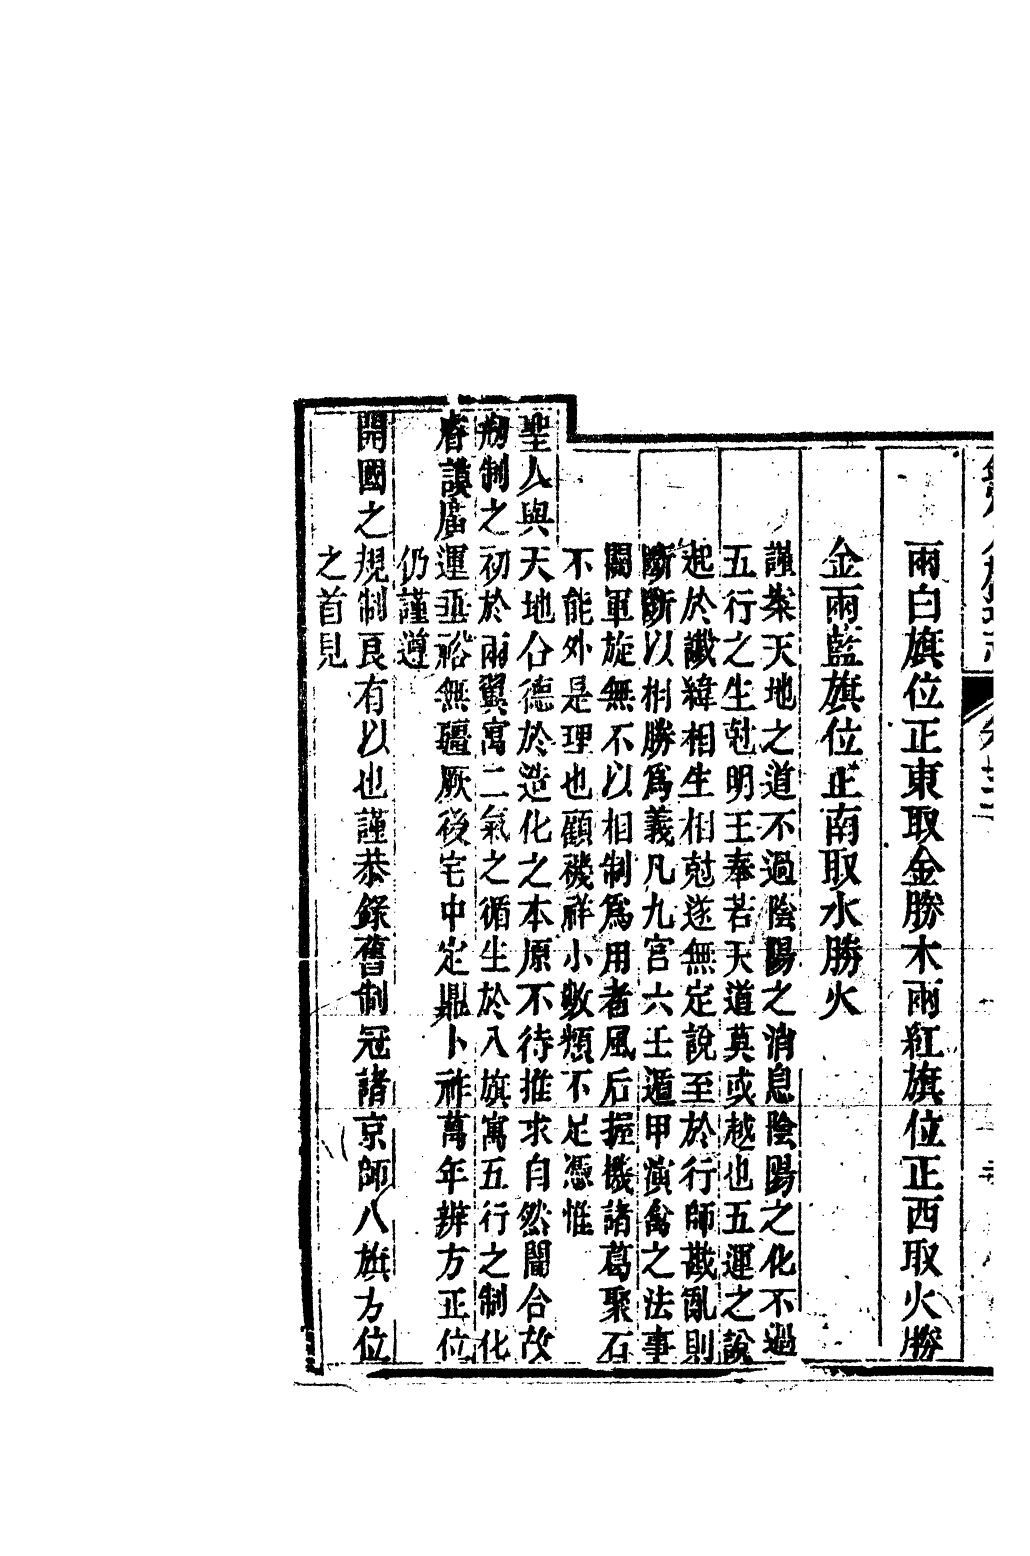 兩白旗位正東取金勝木兩紅旗位正西取火勝
金兩藍旗位正南取水勝火
謹案天地之道不過陰陽之消息陰陽之化不過
五行之生尅明王奉若天道莫或越也五運之說
起於讖緯相生相尅遂無定說至於行師戡亂則
斷斷以相勝爲義凡九宮六壬遁甲演禽之法事
關軍旋無不以相制爲用者風后握機諸葛聚石
不能外是理也顧禨祥小數類不足憑惟
聖人與天地合德於造化之本原不待推求自然闇合故
剏制之初於兩翼寓二氣之循生於八旗寓五行之制化
睿謨廣運垂裕無疆厥後宅中定鼎卜祚萬年辨方正位
仍謹遵
開國之規制良有以也謹恭錄舊制冠諸京師八旗方位
之首見